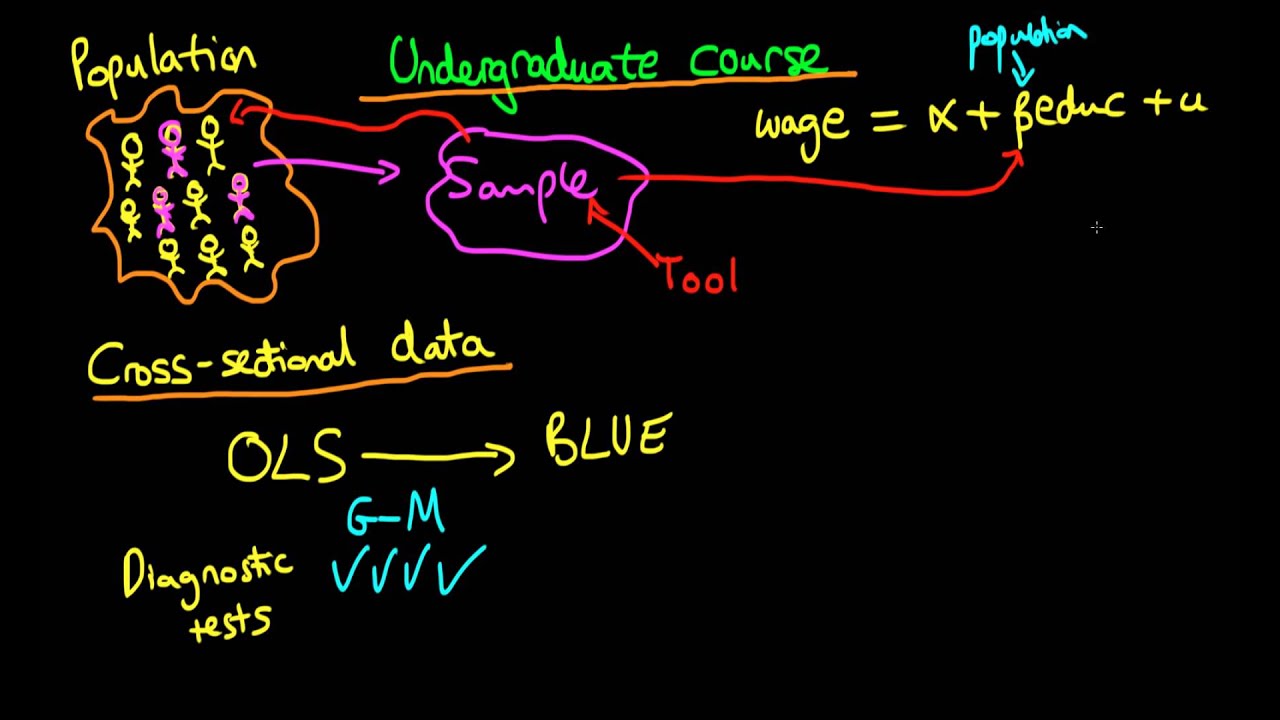 Population
Undergraduate course
population
wage = α + βeduc + u
Sample
Tool
Cross-sectional data
OLS
BLUE
G-M
Diagnostic
tests